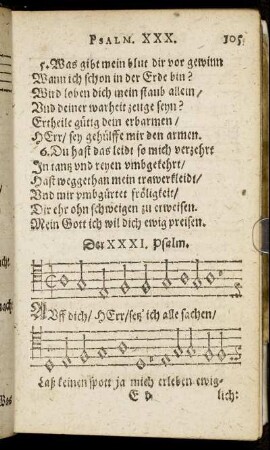 PSALM. XXX. 105
5. Was gibt mein blut dir vor gewinn
Wann ich schon in der Erde bin?
Wird loben dich mein staub allein/
Vnd deiner warheit zeuge seyn?
Ertheile gütig dein erbarmen/
HErr/ sey gehülffe mir den armen.
6. Du hast das leidt so mich verzehrt
In tantz vnd reyen vmbgekehrt/
Hast weggethan mein trawerkleidt/
Vnd mir vmbgürtet fröligkeit/
Dir ehr ohn schweigen zu erweisen.
Mein Gott ich wil dich ewig preisen.
Der XXXI. Psalm.
AVff dich/ HErr/ setz' ich alle sachen/
Laß keinen spott ja mich erleben ewig-
lich: